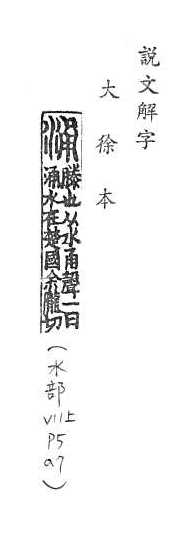 說文解字
大徐本
涌 滕也从水甬聲一曰
涌水在楚國余隴切
(水部
VIII上
P5
a7)